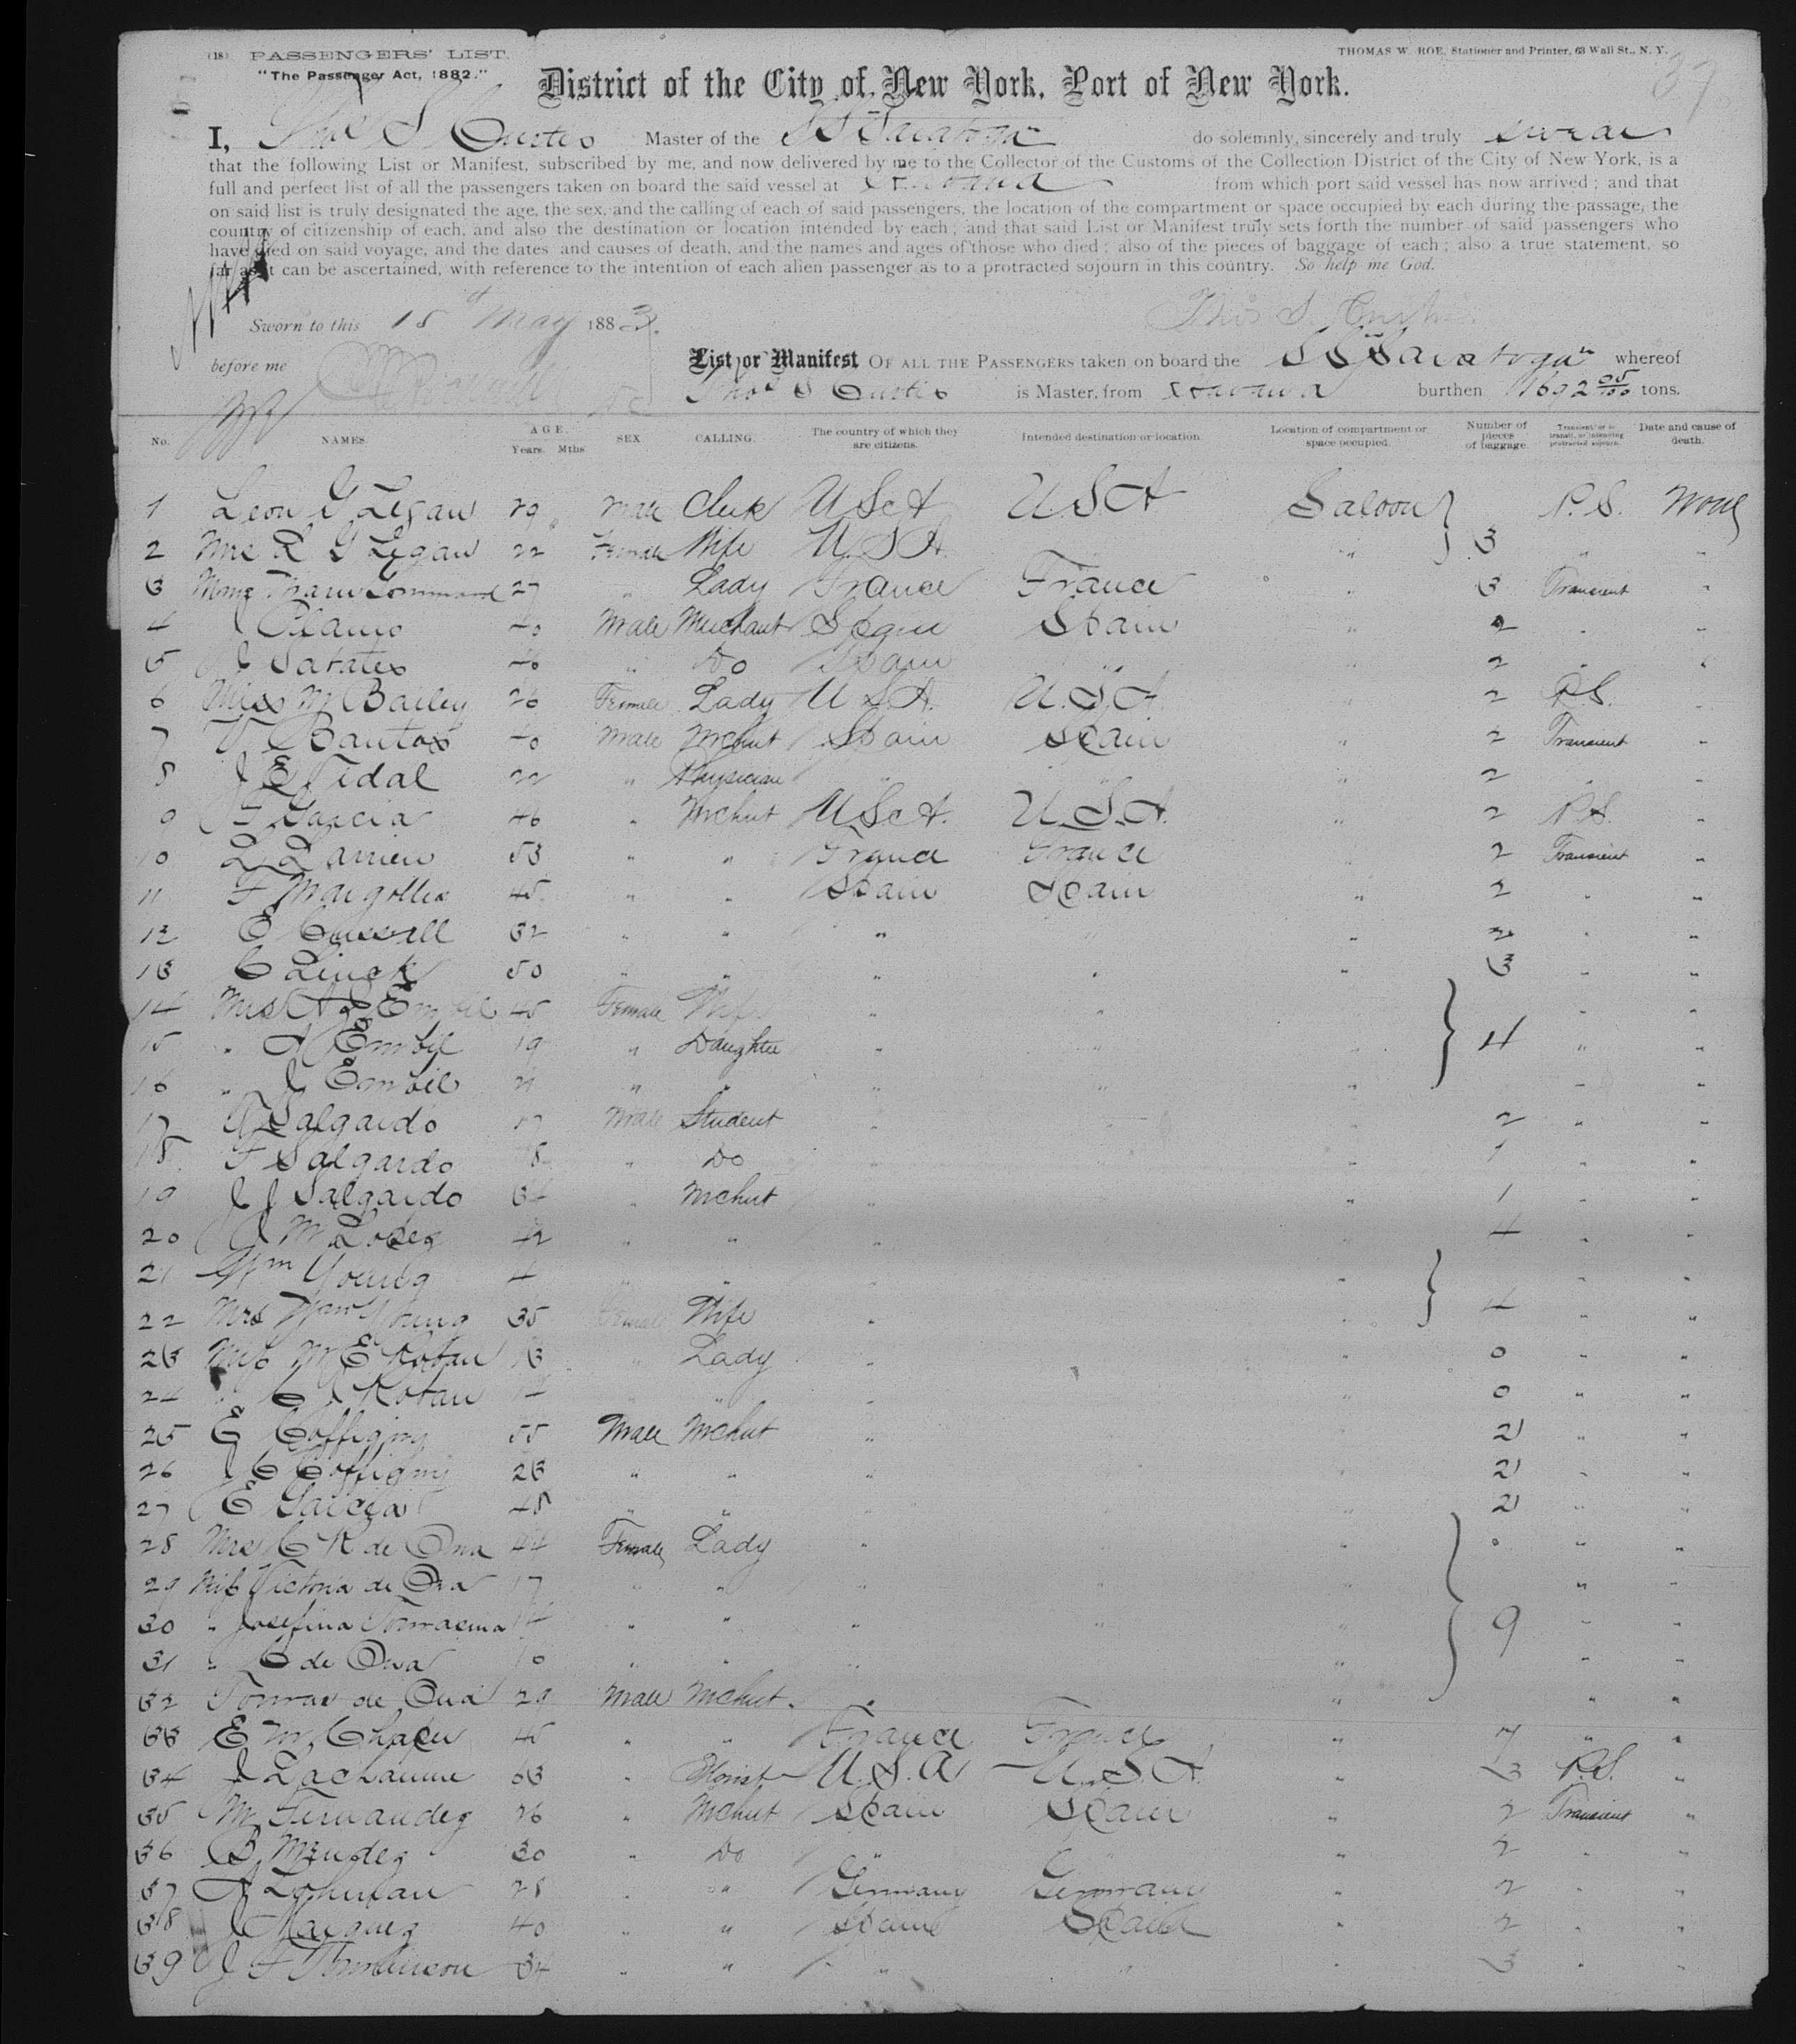 (18) PASSENGERS' LIST.
"The Passenger Act, 1882."
THOMAS W. ROE, Stationer and Printer, 63 Wall St., N. Y.
37
District of the City of New York, Port of New York.
I, Thos S Curtis Master of the SS Saratoga do solemnly, sincerely and truly swear
that the following List or Manifest, subscribed by me, and now delivered by me to the Collector of the Customs of the Collection District of the City of New York, is a
full and perfect list of all the passengers taken on board the said vessel at Havana from which port said vessel has now arrived; and that
on said list is truly designated the age, the sex, and the calling of each of said passengers, the location of the compartment or space occupied by each during the passage, the
country of citizenship of each, and also the destination or location intended by each; and that said List or Manifest truly sets forth the number of said passengers who
have died on said voyage, and the dates and causes of death, and the names and ages of those who died; also of the pieces of baggage of each; also a true statement, so
far as it can be ascertained, with reference to the intention of each alien passenger as to a protracted sojourn in this country. So help me God.
Sworn to this 15 May 1883. Thos S. Curtis
before me
List or Manifest OF ALL THE PASSENGERS taken on board the SS "Saratoga" whereof
Thos S Curtis is Master, from Havana burthen 1692 05/100 tons.
No. NAMES. AGE. Years. Mths. SEX. CALLING. The country of which they are citizens. Intended destination or location. Location of compartment or space occupied. Number of pieces of baggage. Transient or in transit, or intending protracted sojourn. Date and cause of death.
1 Leon G Legau 29 Male Clerk USA USA Saloon P.S. None
2 Mrs L G Legau 22 Female Wife USA " 3 " "
3 Mme Marie 27 " Lady France France " 3 Transient "
4 J 40 Male Merchant Spain Spain " 2 " "
5 J " Do Spain " " 2 " "
6 Miss M Bailey 26 Female Lady USA U.S.A. " 2 P.S. "
7 Santos 40 Male Mchnt Spain Spain " 2 Transient "
8 J E Vidal 22 " Physician " " " 2 " "
9 F Garcia 46 " Mchnt USA. U.S.A. " 2 P.S. "
10 L Larrieu 53 " " France France " 2 Transient "
11 F Margolles 45 " " Spain Spain " 2 " "
12 E 32 " " " " " 2 " "
13 C Linck 50 " " " " " 3 " "
14 Mrs A L Embil 45 Female Wife " " " "
15 " A Embil 19 " Daughter " " " 4 " "
16 " J Embil " " " " " " "
17 Salgardo 17 Male Student " " 2 " "
18 F Salgardo 18 " Do " " 1 " "
19 J J Salgardo 34 " Mchnt " " 1 " "
20 J M Lopez 42 " " " 4 " "
21 Wm Young " " " " " "
22 Mrs Wm Young 35 Female Wife " " 4 " "
23 Miss M E Roban Lady " " 0 " "
24 " C J Roban " " " 0 " "
25 E Coffigny 55 Male Mchnt " 2 " "
26 J C Coffigny 23 " " " 2 " "
27 E Garcia 48 " " " " 2 " "
28 Mrs C R de Ona 44 Female Lady " " " "
29 Miss Victoria de Ona 17 " " " " " "
30 " Josefina 14 " " " " 9 " "
31 " C de Ona 10 " " " " " "
32 Tomas de Ona 29 Male Mchnt. " " " "
33 E M 45 " " France France " 7 " "
34 J Lachaume 63 " Florist U.S.A U.S.A. " 3 P.S. "
35 M Fernandez 26 " Mchnt Spain Spain " 2 Transient "
36 B Mendez 30 " Do " " " 2 " "
37 A Lohman 28 " " Germany Germany " 2 " "
38 J Marquez 40 " " Spain Spain " 2 " "
39 J F Tomlinson 34 " " " " " 3 " "